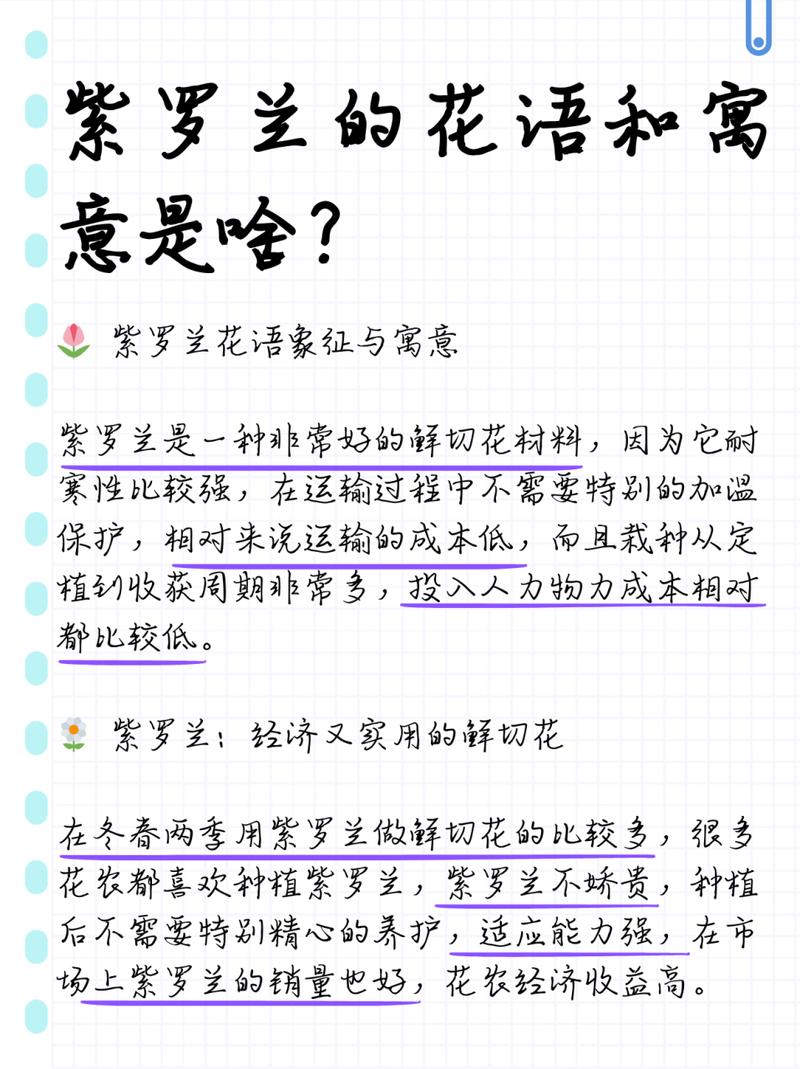 紫罗兰的花语和寓
意是啥？
紫罗兰花语象征与寓意
紫罗兰是一种非常好的鲜切花材料，因为它耐
寒性比较强，在运输过程中不需要特别的加温
保护，相对来说运输的成本低，而且栽种从定
植到收获周期非常多，投入人力物力成本相对
都比较低。
紫罗兰：经济又实用的鲜切花
在冬春两季用紫罗兰做鲜切花的比较多，很多
花农都喜欢种植紫罗兰，紫罗兰不娇贵，种植
后不需要特别精心的养护，适应能力强，在市
场上紫罗兰的销量也好，花农经济收益高。